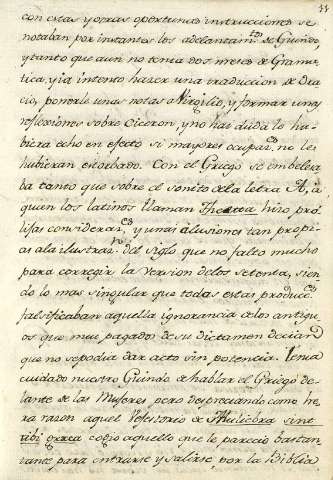 33
con estas y otras oportunas instrucciones se
notaban por instantes los adelantam.tos de Guindo,
y tanto que aun no tenia dos meses de Grama
tica, y ia intentó hazer una traduccion de Ora
cio, ponerle unas notas a Virgilio, y formar unas
reflexiones sobre Ciceron, y no hai duda lo hu
biera echo en efecto si mayores ocupac.es no le
hubieran estorbado. Con el Griego se embelesa
ba tanto que sobre el sonito de la letra A, a
quien los latinos llaman hizo pro
lijas considerac.es y unas alusiones tan propi
as ala ilustraz.n del siglo que no falto mucho
para corregir la version delos setenta, sien
do lo mas singular que todas estas produc.es
falsificaban aquella ignorancia delos antigu
os que mui pagados de su dictamen decian
que no sepodia dar acto sin potencia. Tenia
cuidado nuestro Guindo de hablar el Griego de
lante de las Mujeres pero despreciando como he
ra razon aquel Refertorio de
cogio aquello que le parecio bastan
tante para entrarse y salirse por la Biblia